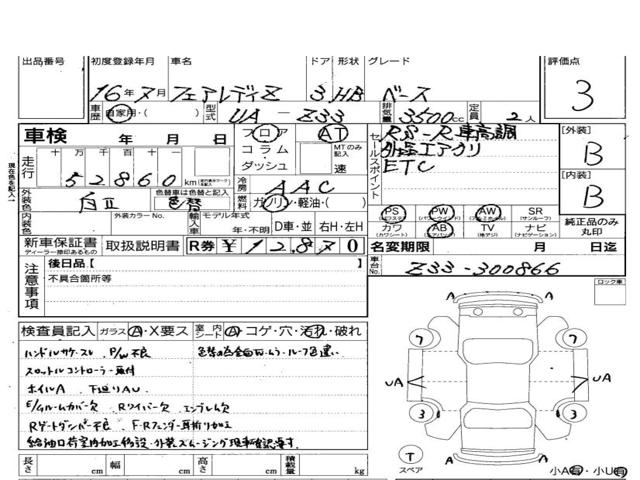 出品番号 初度登録年月 車名 ドア 形状 グレード 評価点
16年7月 フェアレディZ 3 HB ベース 3
車歴 自家用・( ) 型式 UA-Z33 排気量 3500cc 定員 2人
車検 年 月 日 フロア AT セールスポイント RS-R車高調 [外装]
走行 十万千百十一 コラム MTのみ記入 外品エアクリ B
52860km ダッシュ 速 ETC
現在色を記入
外装色 白 色替車は色替と記入 色替 冷房 AAC [内装]
燃料 ガソリン・軽油・( ) B
内装色 外装カラーNo. 輸入車 モデル年式 年・不明 D車・並 右H・左H
PS (パワステ) PW (パワーウインド) AW (アルミホイル) SR (サンルーフ) 純正品のみ丸印
カワ (カワシート) AB (エアバック) TV (地デジ) ナビ (ナビゲーション)
新車保証書 取扱説明書 R券 ¥12,870 名変期限 月 日迄
ディーラー捺印あるもの
後日品【 】 車台No. Z33-300866
注意事項 不具合箇所等 ロック車
検査員記入 ガラス A・X要ス 室内シート A・コゲ・穴・汚れ・破れ
ハンドルサケ・スレ P/W不良
スロットルコントローラー取付
ホイルA 下廻りAU
E/gルームカバー欠 Rワイパー欠 エンブレム欠
Rゲートダンパー不良 F・Rフェンダー耳折り加工
A A
7 7
UA UA
3 3
A A
T スペア
長さ cm 幅 cm 高さ cm 積載量 kg 小A有・小U有